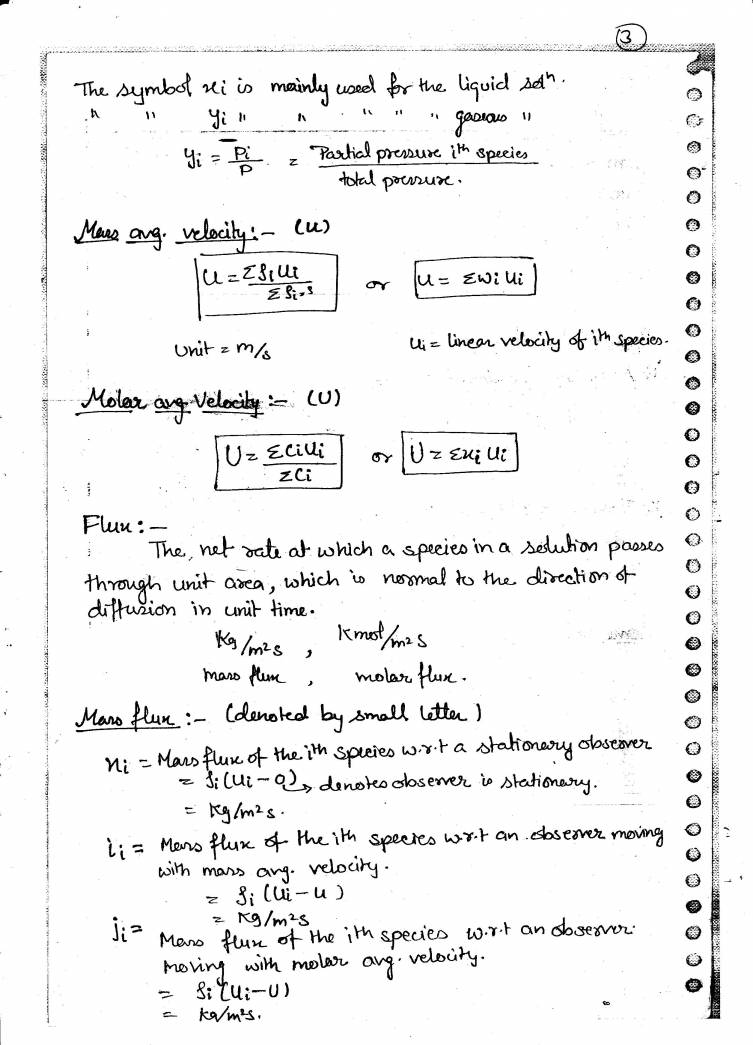 3
The symbol xi is mainly used for the liquid solⁿ.
" " yi " " " " " gaseous "
yi = p̄i/P = Partial pressure ith species / total pressure.
Mass avg. velocity :- (u)
u = Σρiui / Σρi=ρ or u = Σωi ui
Unit = m/s ui = linear velocity of ith species.
Molar avg. Velocity :- (U)
U = Σciui / Σci or U = Σxi ui
Flux :-
The, net rate at which a species in a solution passes
through unit area, which is normal to the direction of
diffusion in unit time.
Kg/m²s , Kmol/m²s
mass flux , molar flux.
Mass flux :- (denoted by small letter)
ni = Mass flux of the ith species w.r.t a stationary observer
= ρi(ui - 0) → denotes observer is stationary.
= Kg/m²s.
ii = Mass flux of the ith species w.r.t an observer moving
with mass avg. velocity.
= ρi (ui - u)
= Kg/m²s
ji = Mass flux of the ith species w.r.t an observer
moving with molar avg. velocity.
= ρi (ui - U)
= kg/m²s.